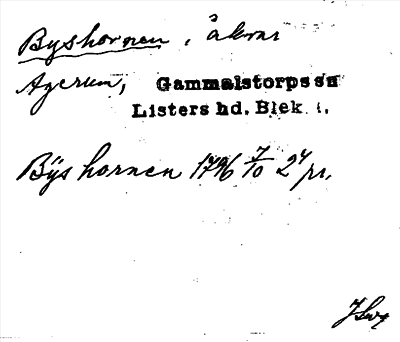 Byshornen, åkrar
Agerum, Gammalstorps sn
Listers hd. Blek.
Bÿshornen 1796 7/10 27 pr.